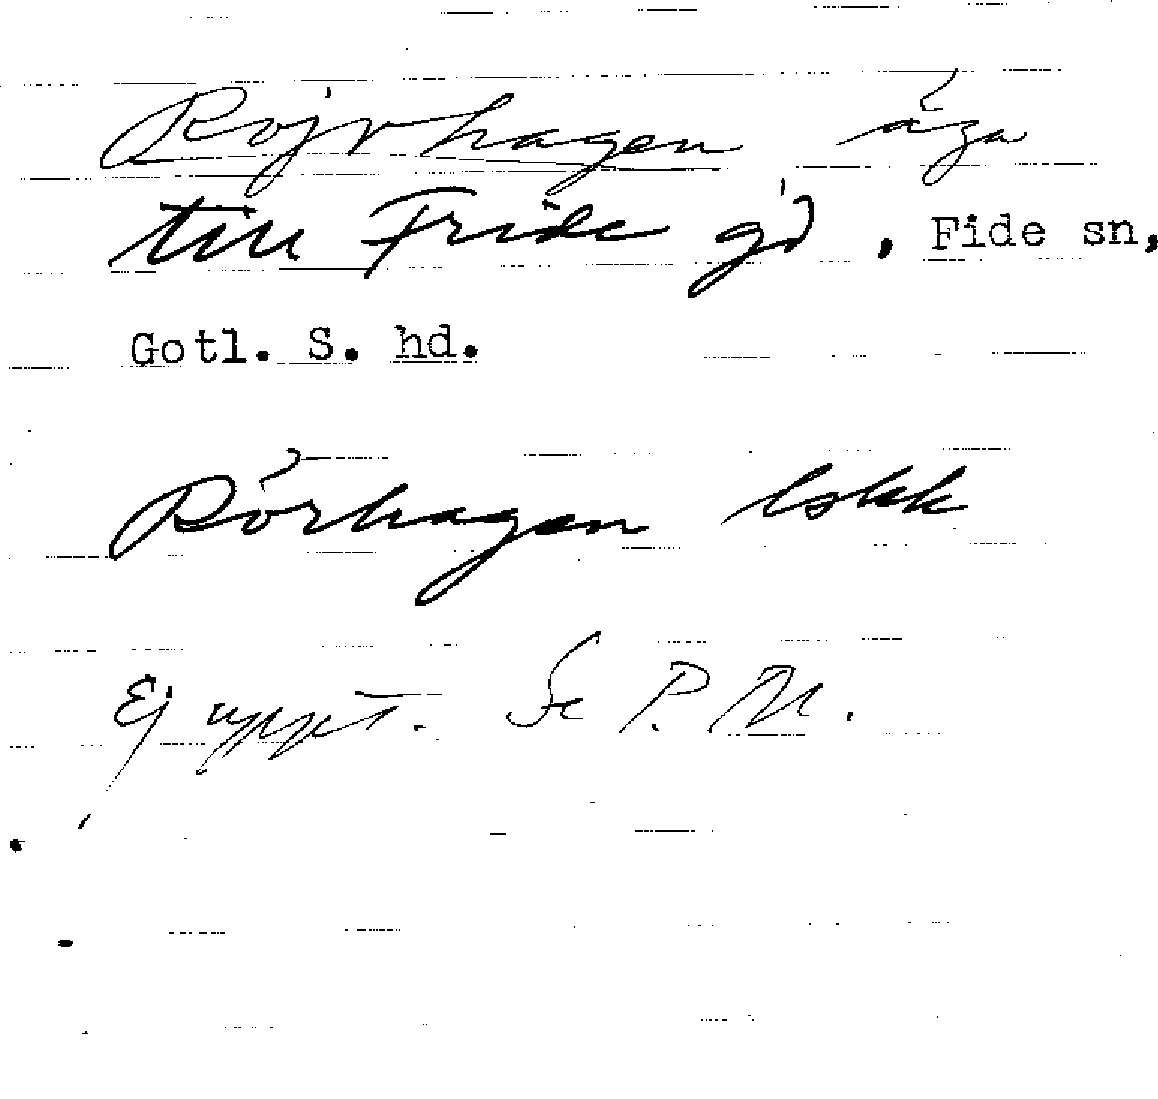 Rojrhagen äga
till Fride gd, Fide sn,
Gotl. S. hd.
Rörhagen
Ej uppt. Se P.M.